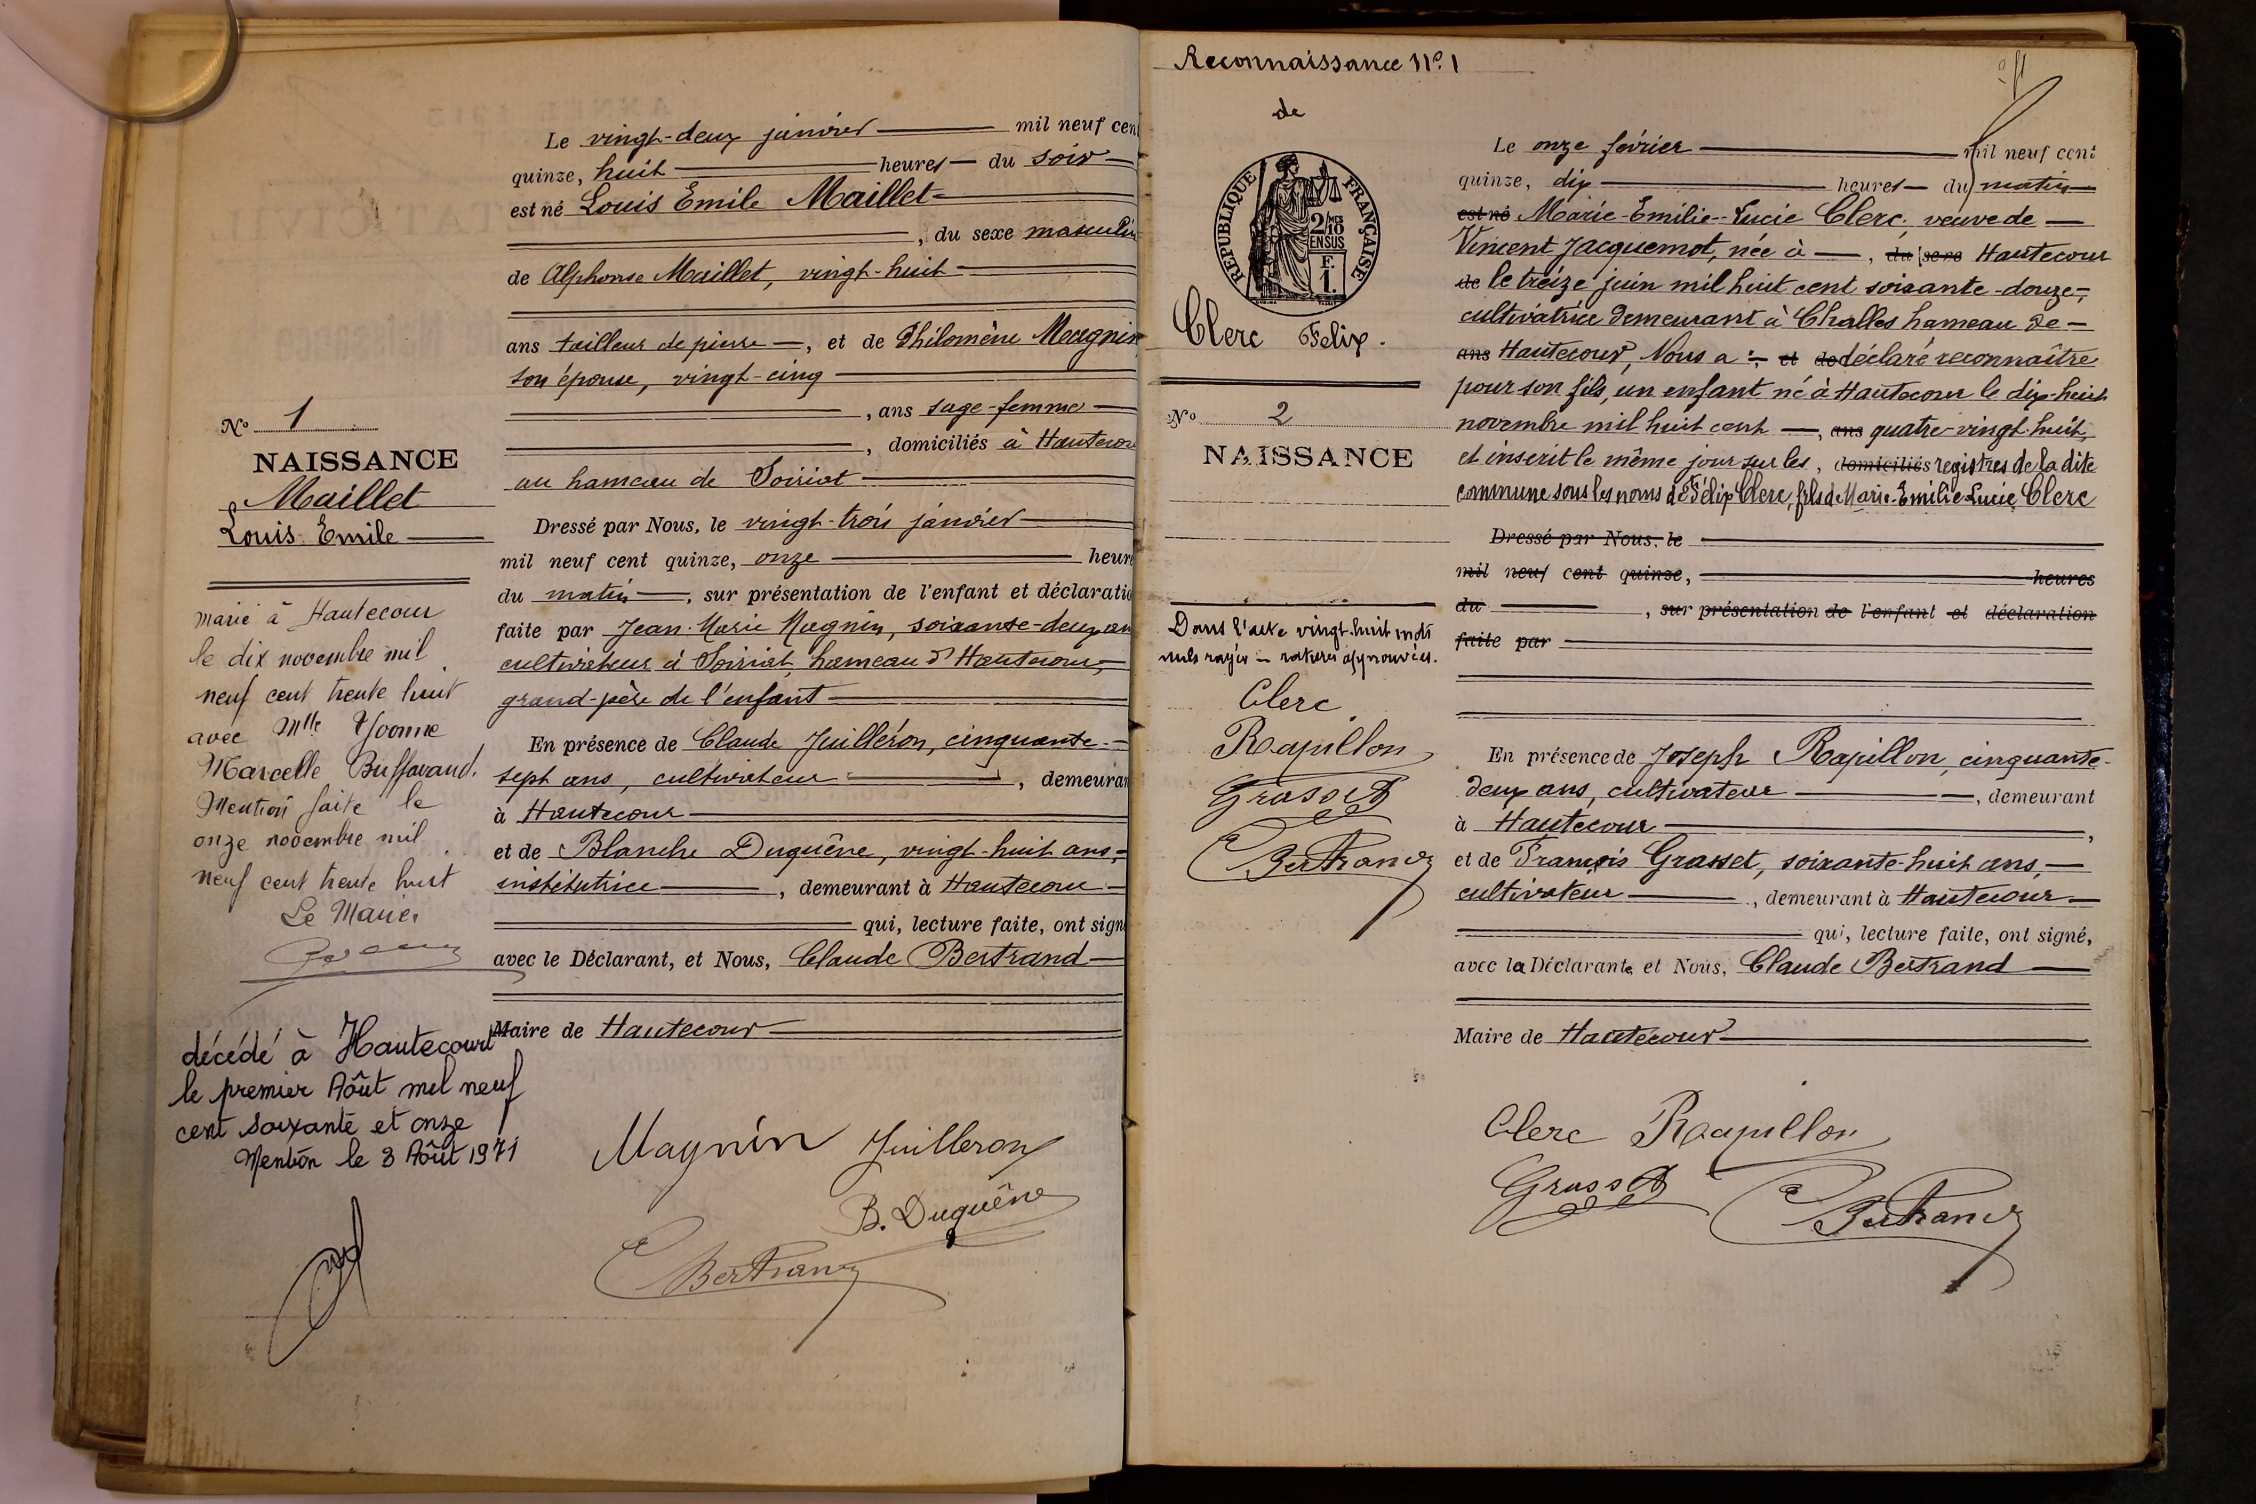 N° 1
NAISSANCE
Maillet
Louis Emile
marié à Hautecour
le dix novembre mil
neuf cent trente huit
avec Mlle Yvonne
Marcelle Buffavand.
Mention faite le
onze novembre mil
neuf cent trente huit
Le Maire
décédé à Hautecourt
le premier Août mil neuf
cent soixante et onze
Mention le 3 Août 1971
Le vingt-deux janvier mil neuf cent
quinze, huit heures du soir
est né Louis Emile Maillet
, du sexe masculin
de Alphonse Maillet, vingt-huit
ans tailleur de pierre, et de Philomène Magnin
son épouse, vingt-cinq
, ans sage-femme
, domiciliés à Hautecour
au hameau de Soiriat
Dressé par Nous, le vingt-trois janvier
mil neuf cent quinze, onze heures
du matin, sur présentation de l'enfant et déclaration
faite par Jean-Marie Magnin, soixante-deux ans
cultivateur à Soiriat, hameau d'Hautecour,
grand-père de l'enfant
En présence de Claude Juilléron, cinquante-
sept ans, cultivateur, demeurant
à Hautecour
et de Blanche Duquêne, vingt-huit ans,
institutrice, demeurant à Hautecour
qui, lecture faite, ont signé
avec le Déclarant, et Nous, Claude Bertrand
Maire de Hautecour
Magnin Juilleron
B. Duquêne
Bertrand
Reconnaissance N° 1
de
RÉPUBLIQUE FRANÇAISE
2/10 MES
EN SUS
F.
1.
Clerc Felix.
N° 2
NAISSANCE
Dans l'acte vingt-huit mots
nuls rayés approuvés.
Clerc
Rapillon
Grasset
Bertrand
Le onze février mil neuf cent
quinze, dix heures du matin
est né Marie-Emilie-Lucie Clerc, veuve de
Vincent Jacquemot, née à, du sexe Hautecour
de le treize juin mil huit cent soixante-douze,
cultivatrice demeurant à Challes hameau de
ans Hautecour, Nous a, et de déclaré reconnaître
pour son fils, un enfant né à Hautecour le dix-huit
novembre mil huit cent, ans quatre-vingt-huit,
et inscrit le même jour sur les, domiciliés registres de la dite
commune sous les noms de Félix Clerc, fils de Marie-Emilie Lucie Clerc
Dressé par Nous, le
mil neuf cent quinze, heures
du, sur présentation de l'enfant et déclaration
faite par
En présence de Joseph Rapillon, cinquante-
deux ans, cultivateur, demeurant
à Hautecour,
et de François Grasset, soixante-huit ans,
cultivateur, demeurant à Hautecour
qui, lecture faite, ont signé,
avec la Déclarante, et Nous, Claude Bertrand
Maire de Hautecour
Clerc Rapillon
Grasset Bertrand